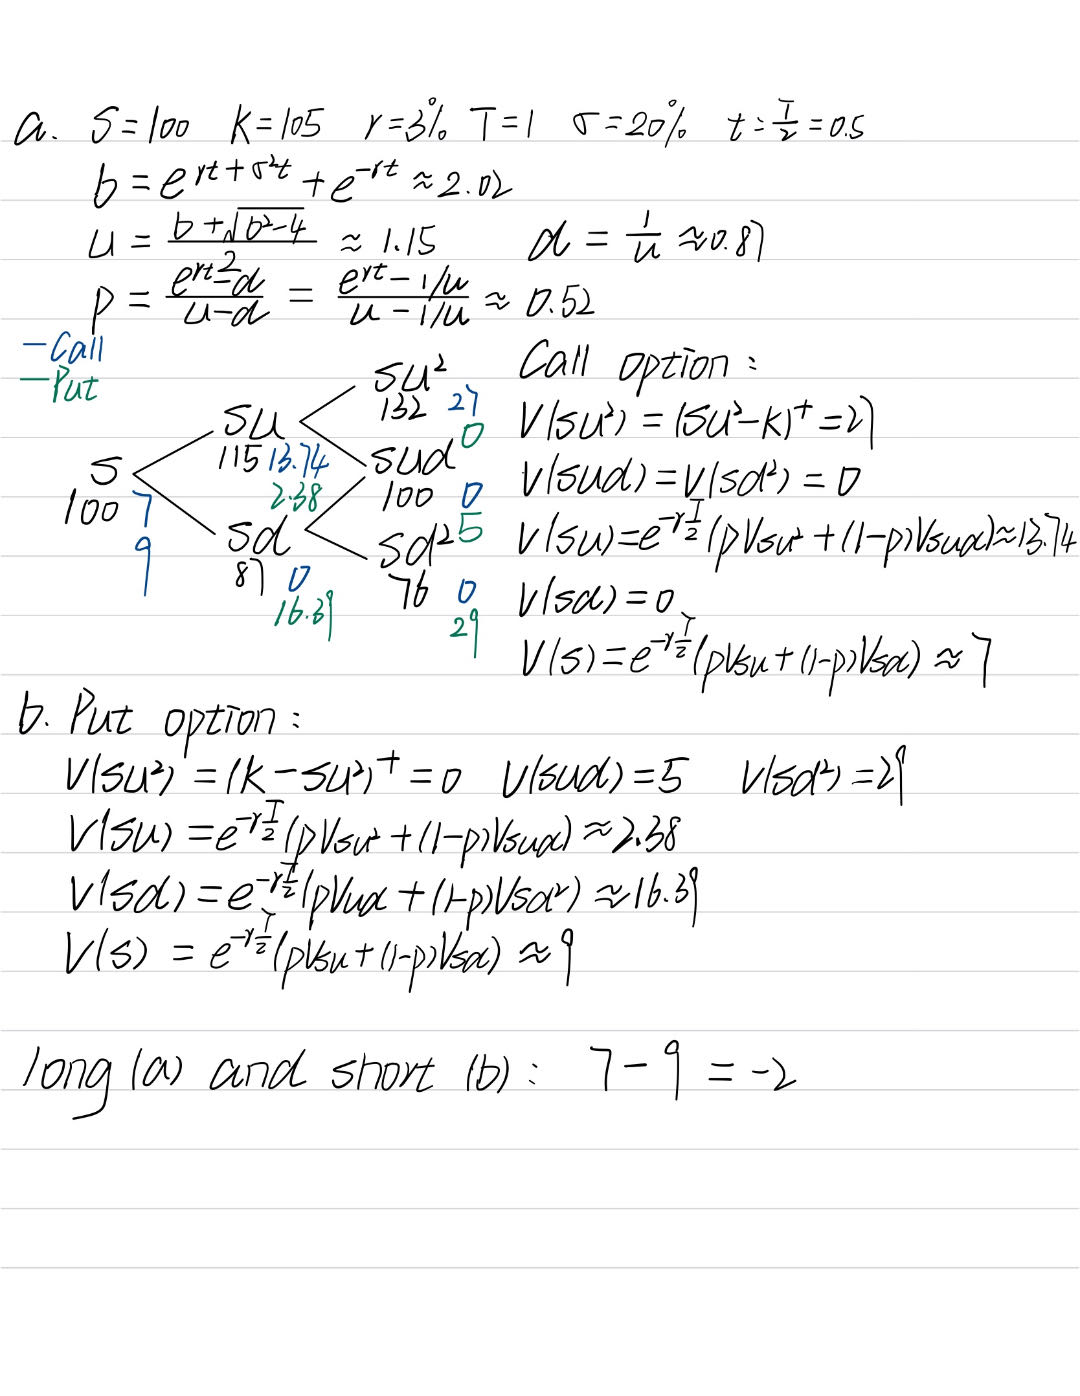 a. S=100 K=105 r=3% T=1 σ=20% t=T/2=0.5
b = e^{rt+σ²t} + e^{-rt} ≈ 2.02
u = (b+√(b²-4))/2 ≈ 1.15 d = 1/u ≈ 0.87
p = (e^{rt}-d)/(u-d) = (e^{rt}-1/u)/(u-1/u) ≈ 0.52
-Call
-Put
S
100 7
9
SU
115 13.74
2.38
Sd
87 0
16.39
SU²
132 27
0
SUd
100 0
5
Sd²
76 0
29
Call option:
V(SU²) = (SU²-K)⁺ = 27
V(SUd) = V(Sd²) = 0
V(SU) = e^{-rT/2}(pVsu² + (1-p)Vsud) ≈ 13.74
V(Sd) = 0
V(S) = e^{-rT/2}(pVsu + (1-p)Vsd) ≈ 7
b. Put option:
V(SU²) = (K-SU²)⁺ = 0 V(SUd) = 5 V(Sd²) = 29
V(SU) = e^{-rT/2}(pVsu² + (1-p)Vsud) ≈ 2.38
V(Sd) = e^{-rT/2}(pVud + (1-p)Vsd²) ≈ 16.39
V(S) = e^{-rT/2}(pVsu + (1-p)Vsd) ≈ 9
long (a) and short (b): 7-9 = -2